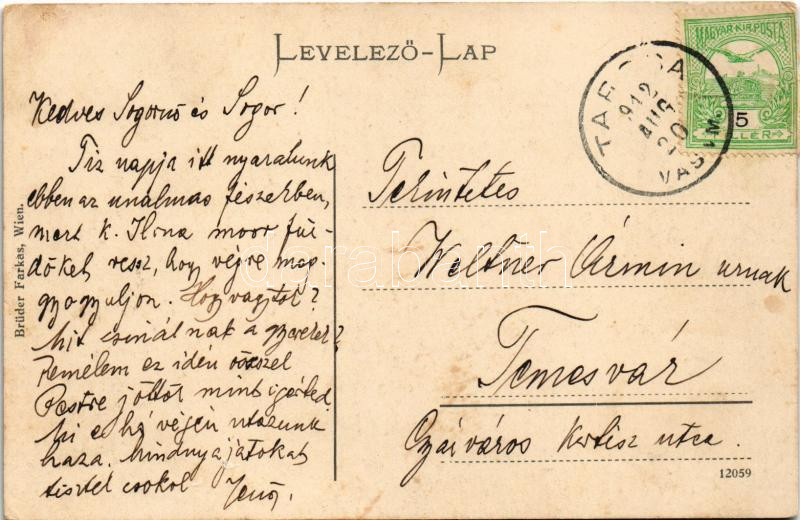 LEVELEZŐ-LAP
MAGYAR KIR. POSTA
5
FILLÉR
TARCSA
912 AUG 20
VAS VM.
Kedves Sogornő és Sogor!
Tiz napja itt nyaralunk
ebben az unalmas fészekben,
mert k. Ilona moor für-
dőket vesz, hogy végre meg-
gyógyuljon. Hogy vagytok?
Mit csinálnak a gyerekek?
Remélem ez idén ősszel
Pestre jöttök mint igérted.
Mi e hó végén utazunk
haza. Mindnyájatokat
tisztel csokol Jenő.
Tekintetes
Weltner Ármin urnak
Temesvár
Gyárváros Kertész utca.
Brüder Farkas, Wien.
12059
darabanth